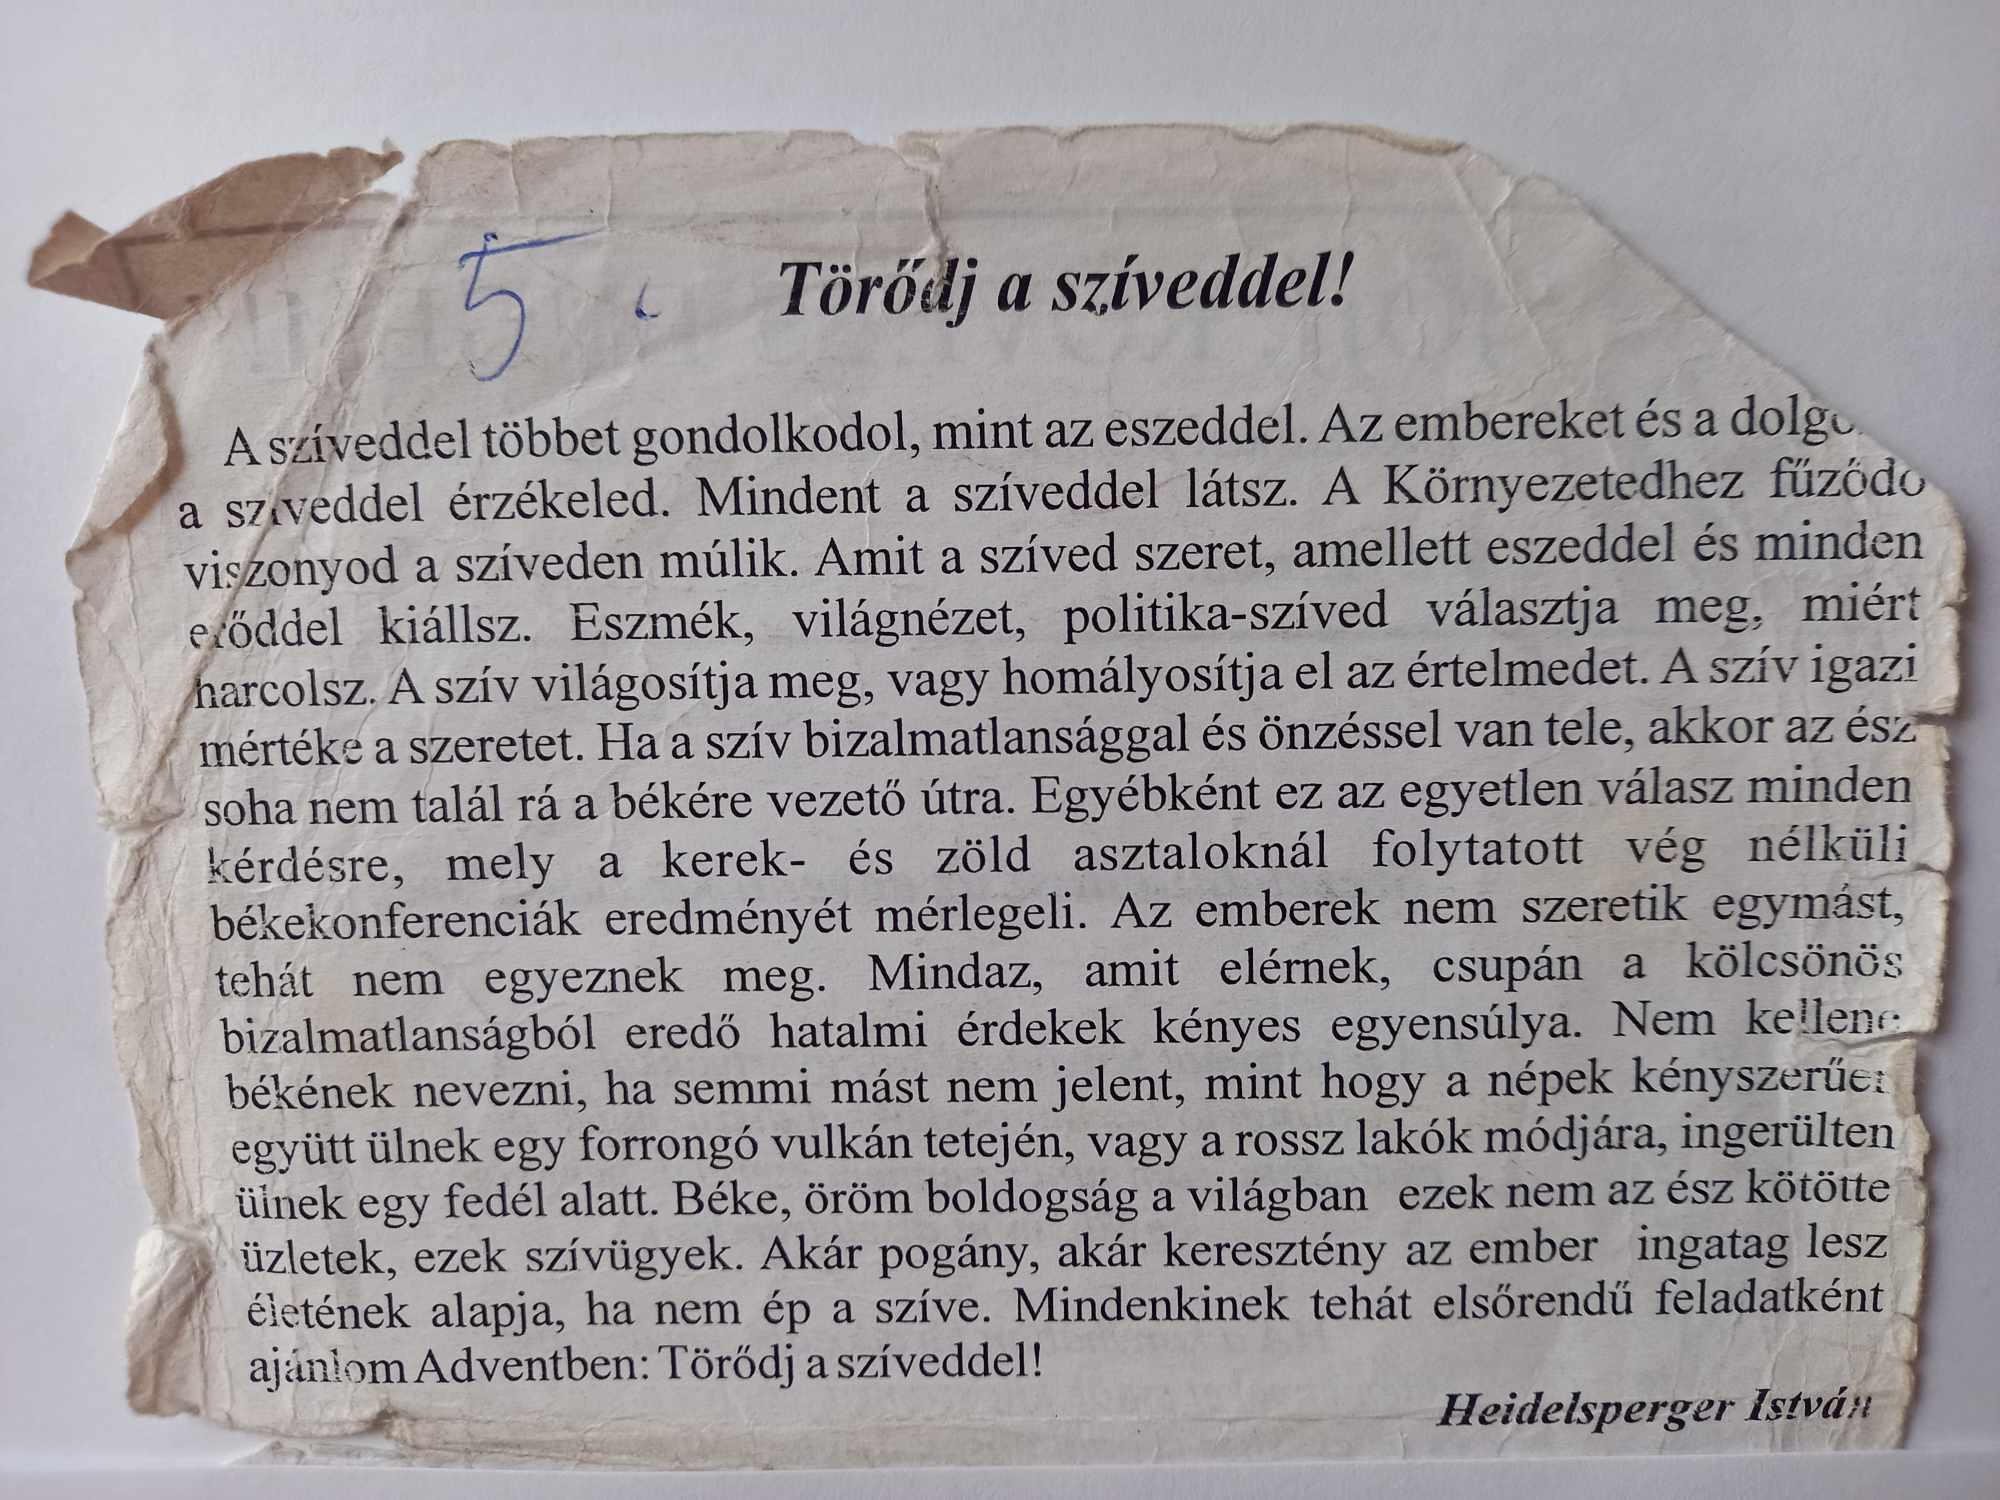 5.
Törődj a szíveddel!
A szíveddel többet gondolkodol, mint az eszeddel. Az embereket és a
a szíveddel érzékeled. Mindent a szíveddel látsz. A Környezetedhez fűződő
viszonyod a szíveden múlik. Amit a szíved szeret, amellett eszeddel és minden
erőddel kiállsz. Eszmék, világnézet, politika-szíved választja meg, miért
harcolsz. A szív világosítja meg, vagy homályosítja el az értelmedet. A szív igazi
mértéke a szeretet. Ha a szív bizalmatlansággal és önzéssel van tele, akkor az ész
soha nem talál rá a békére vezető útra. Egyébként ez az egyetlen válasz minden
kérdésre, mely a kerek- és zöld asztaloknál folytatott vég nélküli
békekonferenciák eredményét mérlegeli. Az emberek nem szeretik egymást,
tehát nem egyeznek meg. Mindaz, amit elérnek, csupán a kölcsönös
bizalmatlanságból eredő hatalmi érdekek kényes egyensúlya. Nem kellene
békének nevezni, ha semmi mást nem jelent, mint hogy a népek kényszerűen
együtt ülnek egy forrongó vulkán tetején, vagy a rossz lakók módjára, ingerülten
ülnek egy fedél alatt. Béke, öröm boldogság a világban ezek nem az ész kötötte
üzletek, ezek szívügyek. Akár pogány, akár keresztény az ember ingatag lesz
életének alapja, ha nem ép a szíve. Mindenkinek tehát elsőrendű feladatként
ajánlom Adventben: Törődj a szíveddel!
Heidelsperger István